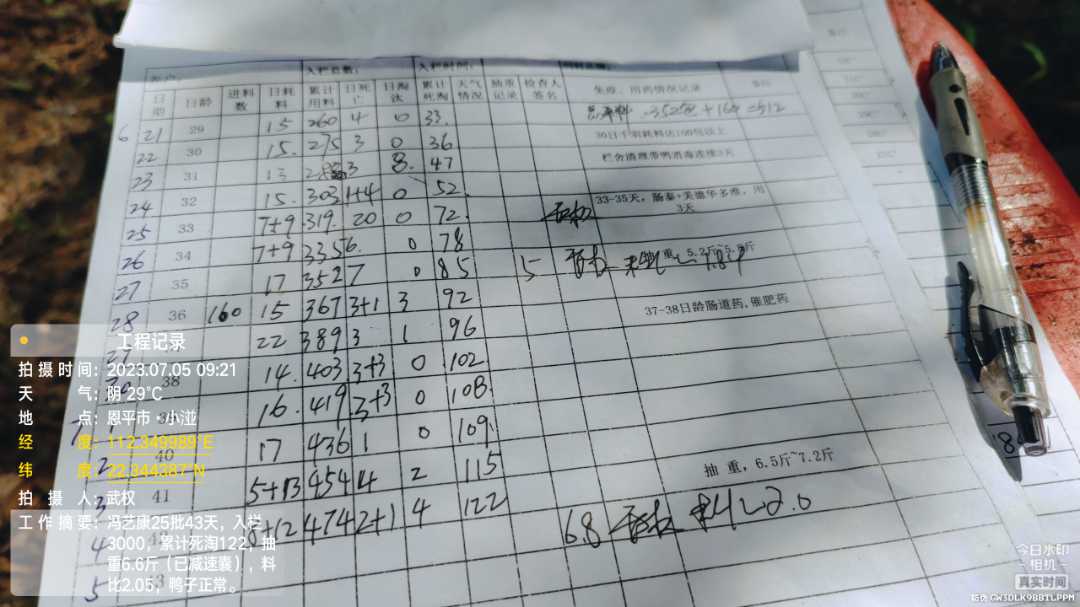 入栏总数: 入栏时间:
日期 日龄 进料数 日耗料 累计用料 日死亡 日淘汰 累计死淘 天气情况 抽重记录 检查人签名 免疫、用药情况记录
6 21 29 15 260 4 0 33. 352包+160=512
22 30 15. 275 3 0 36 30日千羽耗料估100包以上
23 31 13 3 8. 47 栏舍清理带鸭消毒连续3天
24 32 15. 303 1+4 0 52 33-35天，肠泰+美德华多维，用3天
25 33 7+9 319. 20 0 72.
26 34 7+9 335 6. 0 78
27 35 17 352 7 0 85 5
28 36 160 15 367 3+1 3 92 37-38日龄肠道药,催肥药
22 389 3 1 96
38 14. 403 3+3 0 102
16. 419 3+3 0 108
40 17 436 1 0 109
2 41 5+13 454 4 2 115 抽重，6.5斤~7.2斤
3 +12 474 2+1 4 122 6.8 2.0
4
5
工程记录
拍摄时间: 2023.07.05 09:21
天气: 阴 29℃
地点: 恩平市·小湴
经度: 112.349989°E
纬度: 22.344387°N
拍摄人: 武权
工作摘要: 冯艺康25批43天，入栏
3000，累计死淘122，抽
重6.6斤（已减速囊），料
比2.05，鸭子正常。
今日水印
相机
真实时间
防伪 GW3DLK9BBTLPPM